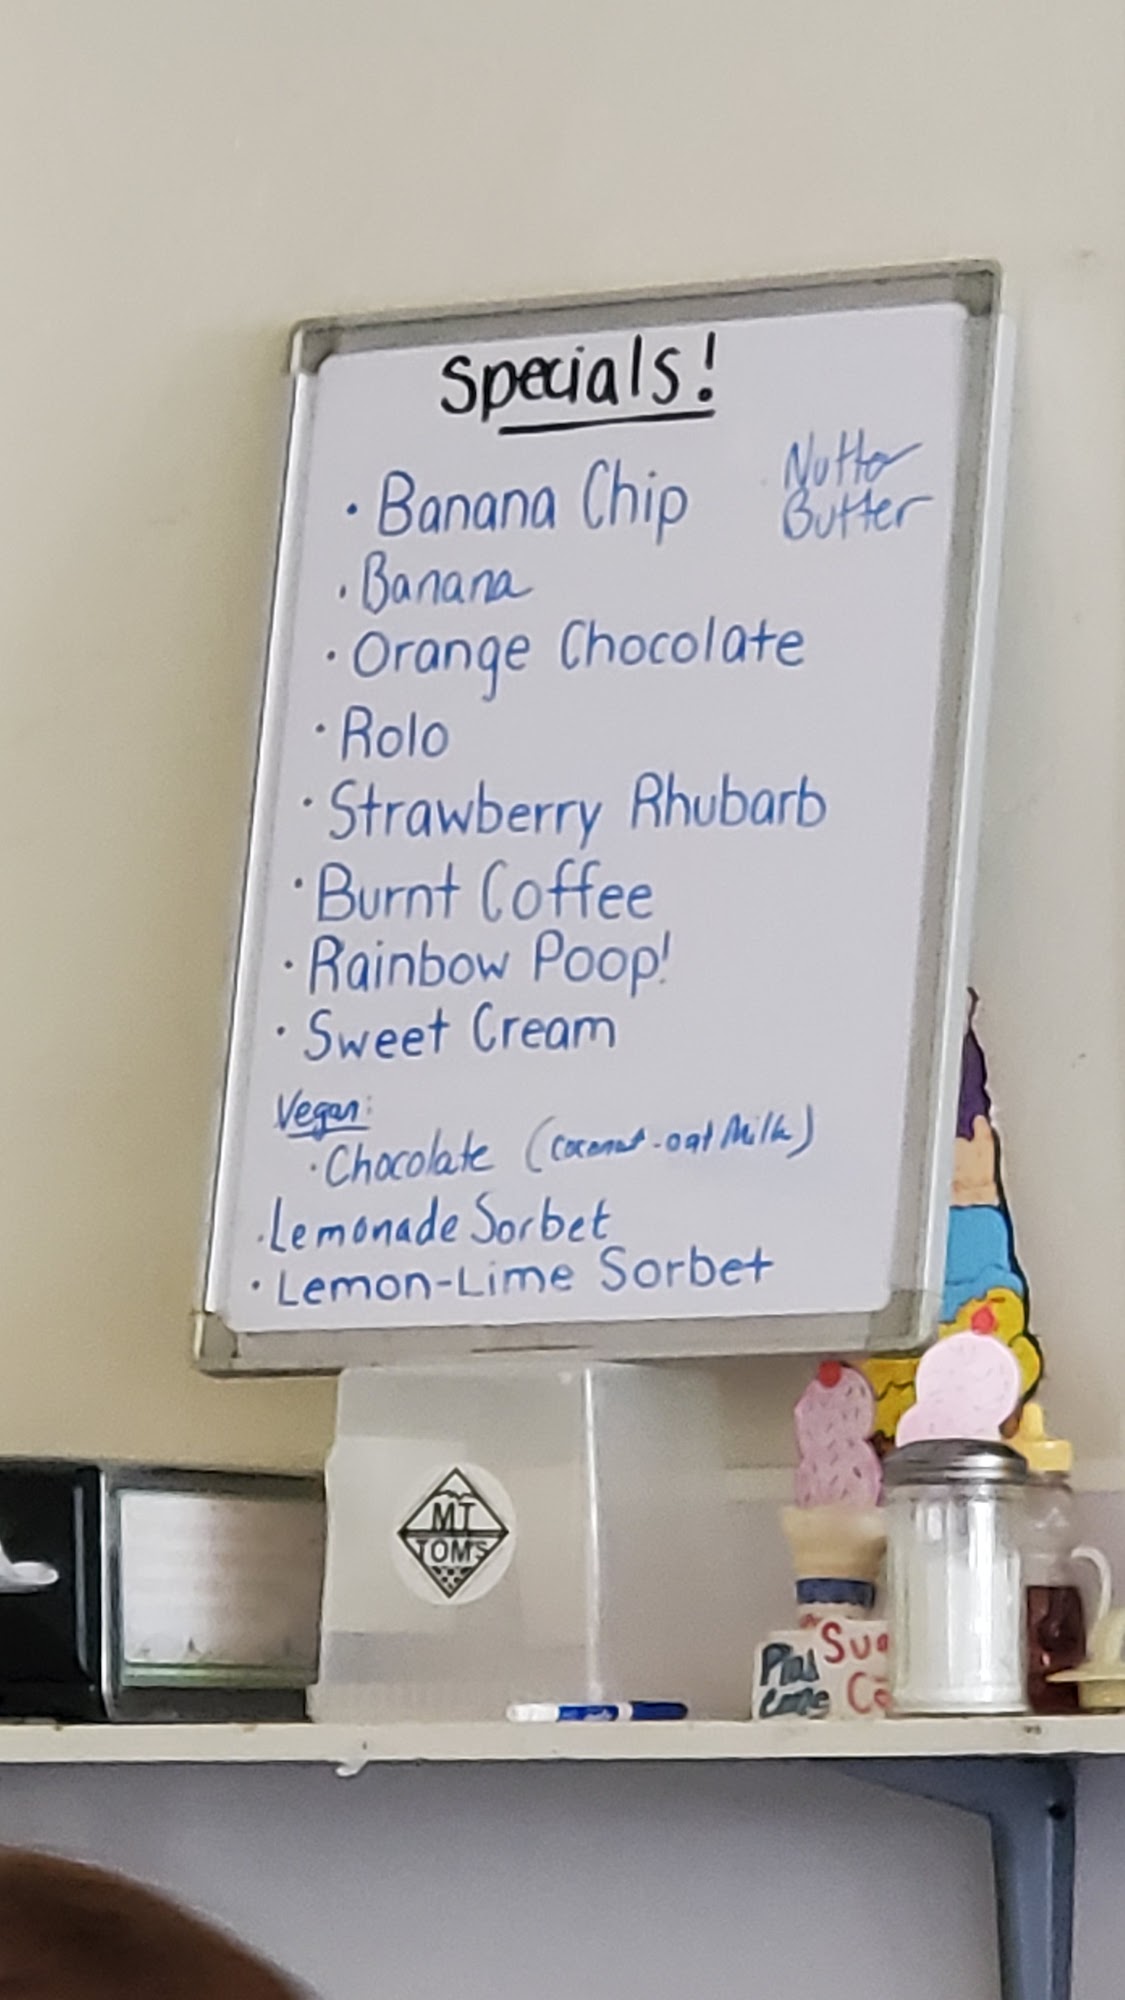 Specials!
• Banana Chip
. Nutter
Butter
• Banana
• Orange Chocolate
• Rolo
• Strawberry Rhubarb
• Burnt Coffee
• Rainbow Poop!
• Sweet Cream
Vegan:
• Chocolate (Coconut-oat Milk)
• Lemonade Sorbet
• Lemon-Lime Sorbet
MT
TOM'S